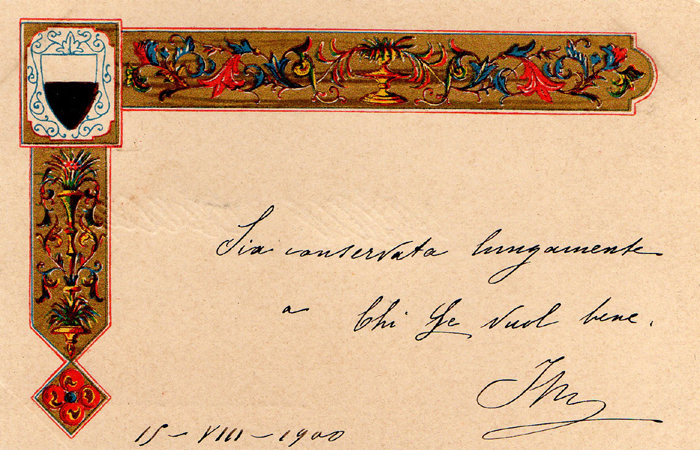 Sia conservata lungamente
a Chi Le vuol bene.
15 - VIII - 1900